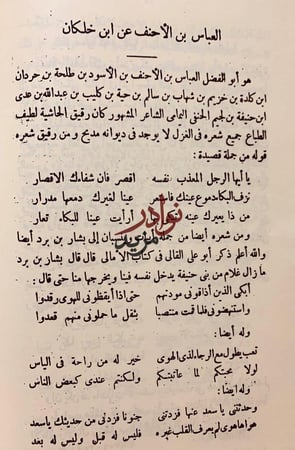 العباس بن الأحنف عن ابن خلكان
هو أبو الفضل العباس بن الأحنف بن الأسود بن طلحة بن حردان
ابن كلدة بن خزيم بن شهاب بن سالم بن حية بن كليب بن عبد الله بن عدى
ابن حنيفة بن لجيم الحنفي اليمامي الشاعر المشهور كان رقيق الحاشية لطيف
الطباع جميع شعره في الغزل لا يوجد في ديوانه مديح و من رقيق شعره
قوله من جملة قصيدة :
يا أيها الرجل المعذب نفسه اقصر فان شفاءك الاقصار
نزف البكاء دموع عينك فاستعر عينا لغيرك دمعها مدرار
من ذا يعيرك عينه تبكى بها أرأيت عينا للبكاء تعار
و من شعره أيضا من جملة أبيات وتنسبان إلى بشار بن برد أيضا
والله أعلم ذكر أبو على القالى فى كتاب الأمالى قال قال بشار بن برد
ما زال غلام من بنى حنيفة يدخل نفسه فينا ويخرجها منا حتى قال :
أبكى الذين أذاقونى مودتهم حتى اذا أيقظونى للهوى رقدوا
واستنهضونى فلما قمت منتصبا بثقل ما حملونى منهم قعدوا
وله أيضا :
تعب يطول مع الرجاء لذى الهوى خير له من راحة فى الياس
لولا محبتكم لما عاتبتكم ولكنتم عندى كبعض الناس
وله أيضا :
وحدثتنى يا سعد عنها فزدتنى جنونا فزدنى من حديثك يا سعد
هواها هوى لم يعرف القلب غيره فليس له قبل وليس له بعد
نوادر